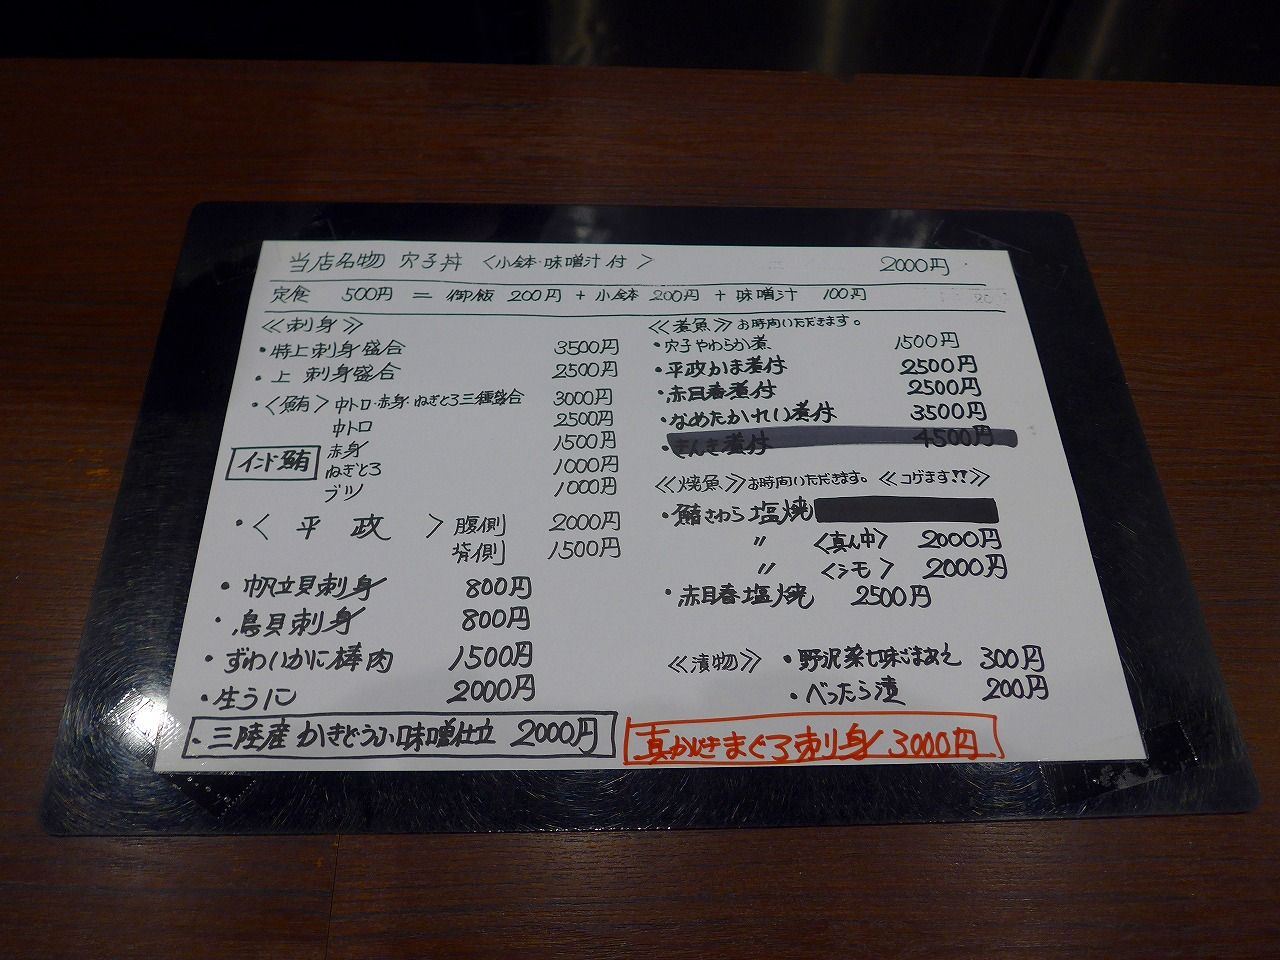 当店名物 穴子丼 〈小鉢・味噌汁付〉 2000円
定食 500円 = 御飯 200円 + 小鉢 200円 + 味噌汁 100円
≪刺身≫
・特上刺身盛合 3500円
・上 刺身盛合 2500円
・〈鮪〉中トロ・赤身・ねぎとろ三種盛合 3000円
中トロ 2500円
インド鮪
赤身 1500円
ねぎとろ 1000円
ブツ 1000円
・〈平政〉腹側 2000円
背側 1500円
・帆立貝刺身 800円
・鳥貝刺身 800円
・ずわいかに棒肉 1500円
・生うに 2000円
・三陸産かきどうふ味噌仕立 2000円
≪煮魚≫お時間いただきます。
・穴子やわらか煮 1500円
・平政かま煮付 2500円
・赤目春煮付 2500円
・なめたかれい煮付 3500円
・きんき煮付 4500円
≪焼魚≫お時間いただきます。≪コゲます!!≫
・鰆さわら塩焼
〃 〈真ん中〉 2000円
〃 〈シモ〉 2000円
・赤目春塩焼 2500円
≪漬物≫ ・野沢菜七味ごまあえ 300円
・べったら漬 200円
真かじきまぐろ刺身 3000円